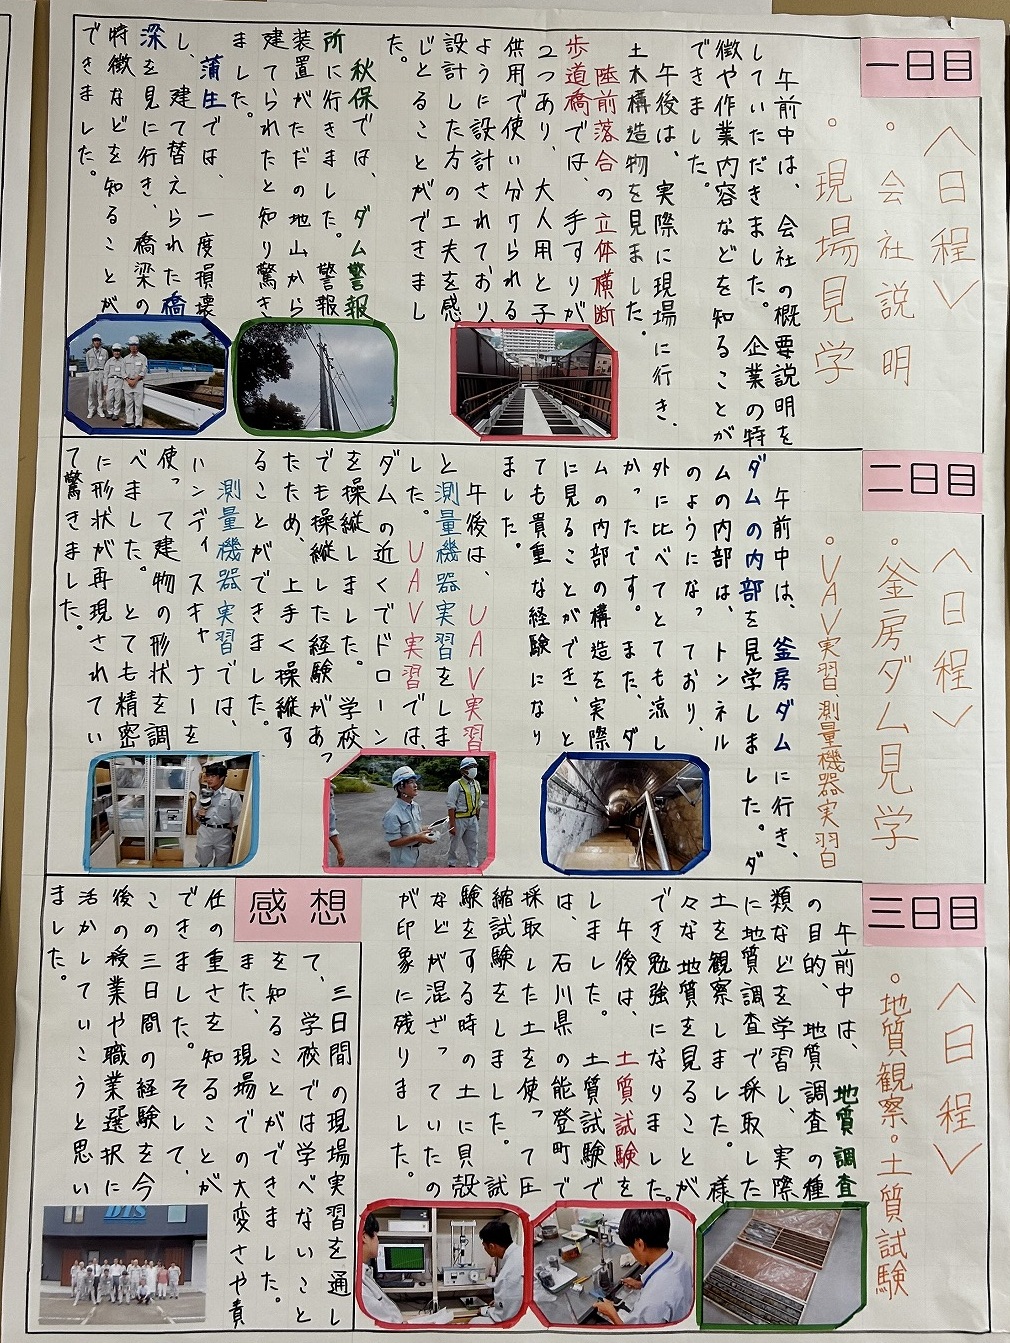 一日目
〈日程〉
・会社説明
・現場見学
午前中は、会社の概要説明を
していただきました。企業の特
徴や作業内容などを知ることが
できました。
午後は、実際に現場に行き、
土木構造物を見ました。
陸前落合の立体横断
歩道橋では、手すりが
2つあり、大人用と子
供用で使い分けられる
ように設計されており、
設計した方の工夫を感
じとることができまし
た。
秋保では、ダム警報
所に行きました。警報
装置がただの地山から
建てられたと知り驚き
ました。
蒲生では、一度損壊
し、建て替えられた橋
深を見に行き、橋梁の
特徴などを知ることが
できました。
二日目
〈日程〉
・釜房ダム見学
・UAV実習測量機器実習日
午前中は、釜房ダムに行き、
ダムの内部を見学しました。ダ
ムの内部は、トンネル
のようになっており、
外に比べてとても涼し
かったです。また、ダ
ムの内部の構造を実際
に見ることができ、と
ても貴重な経験になり
ました。
午後は、UAV実習
と測量機器実習をしま
した。UAV実習では、
ダムの近くでドローン
を操縦しました。学校
でも操縦した経験があっ
たため、上手く操縦す
ることができました。
測量機器実習では、
ハンディスキャナーを
使って建物の形状を調
べました。とても精密
に形状が再現されてい
て驚きました。
三日目
〈日程〉
・地質観察・土質試験
午前中は、地質調査
の目的、地質調査の種
類などを学習し、実際
に地質調査で採取した
土を観察しました。様
々な地質を見ることが
でき勉強になりました。
午後は、土質試験を
しました。土質試験で
は、石川県の能登町で
採取した土を使って圧
縮試験をしました。試
験をする時の土に貝殻
などが混ざっていたの
が印象に残りました。
感想
三日間の現場実習を通し
て、学校では学べないこと
を知ることができました。
また、現場での大変さや責
任の重さを知ることが
できました。そして、
この三日間の経験を今
後の授業や職業選択に
活かしていこうと思い
ました。
DIS